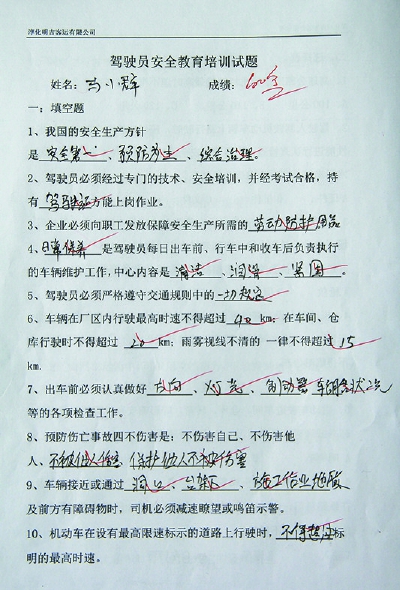 淳化明吉客运有限公司
驾驶员安全教育培训试题
姓名：马小辉 成绩：100分
一：填空题
1、我国的安全生产方针
是 安全第一、预防为主、综合治理。
2、驾驶员必须经过专门的技术、安全培训，并经考试合格，持
有 驾驶证 方能上岗作业。
3、企业必须向职工发放保障安全生产所需的 劳动防护用品
4、日常保养 是驾驶员每日出车前、行车中和收车后负责执行
的车辆维护工作，中心内容是 清洁、润滑、紧固。
5、驾驶员必须严格遵守交通规则中的 一切规定
6、车辆在厂区内行驶最高时速不得超过 40 km；在车间、仓
库行驶时不得超过 20 km；雨雾视线不清的 一律不得超过 15
km.
7、出车前必须认真做好 方向、灯光、制动器 车辆各状况
等的各项检查工作。
8、预防伤亡事故四不伤害是：不伤害自己、不伤害他
人、不被他人伤害、保护他人不被伤害
9、车辆接近或通过 洞口、台架、施工作业地段
及前方有障碍物时，司机必须减速瞭望或鸣笛示警。
10、机动车在设有最高限速标示的道路上行驶时，不得超过 标
明的最高时速。